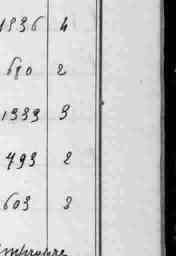 1336 4
680 2
1333 3
493 2
603 3